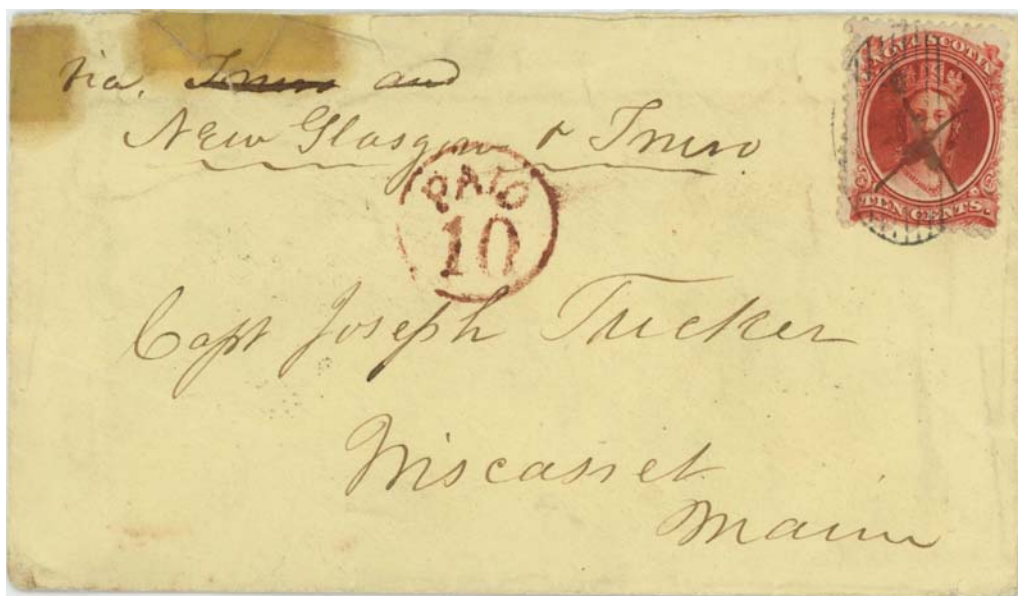 via, Truro and
New Glasgow & Truro
NOVA SCOTIA
TEN CENTS.
PAID
10
Capt Joseph Tucker
Wiscasset
Maine